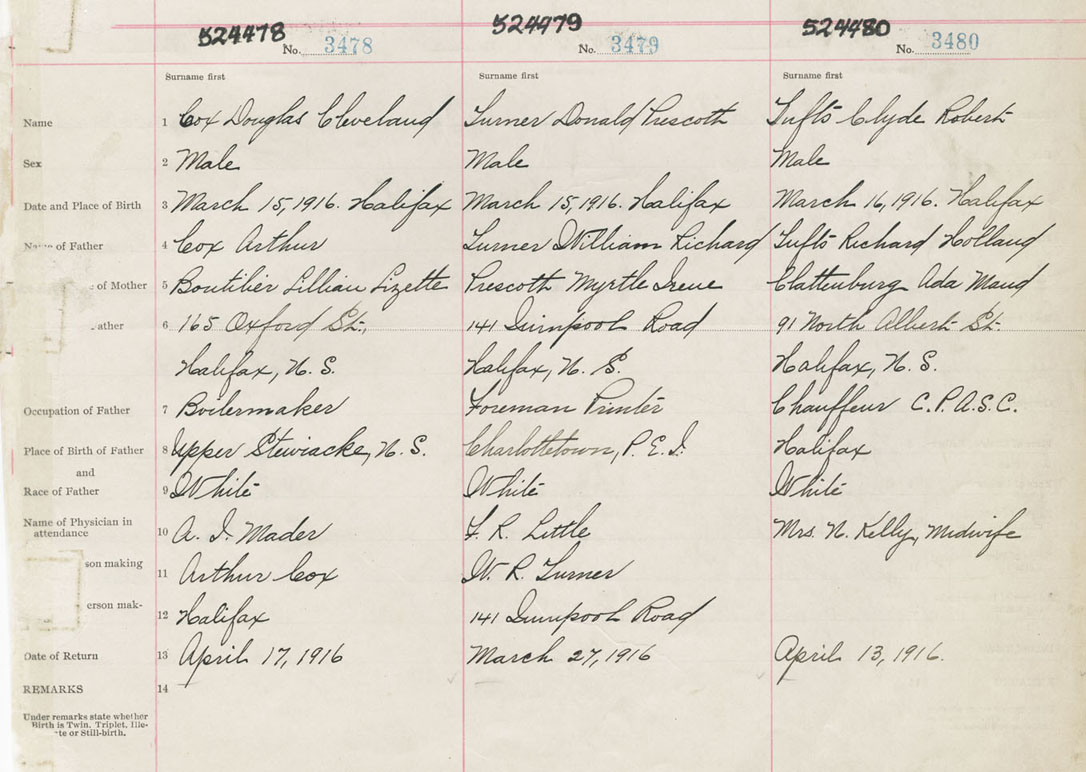 524478 524479 524480
No. 3478 No. 3479 No. 3480
Surname first Surname first Surname first
Name 1 Cox Douglas Cleveland Turner Donald Prescott Tufts Clyde Robert
Sex 2 Male Male Male
Date and Place of Birth 3 March 15, 1916. Halifax March 15, 1916. Halifax March 16, 1916. Halifax
of Father 4 Cox Arthur Turner William Richard Tufts Richard Holland
of Mother 5 Boutilier Lillian Lizette Prescott Myrtle Irene Clattenburg Ada Maud
ather 6 165 Oxford St., 141 Quinpool Road 91 North Albert St.
Halifax, N. S. Halifax, N. S. Halifax, N. S.
Occupation of Father 7 Boilermaker Foreman Printer Chauffeur C.P.A.S.C.
Place of Birth of Father 8 Upper Stewiacke, N. S. Charlottetown, P. E. I. Halifax
and
Race of Father 9 White White White
Name of Physician in
attendance 10 A. I. Mader F. R. Little Mrs. N. Kelly, Midwife
son making
11 Arthur Cox W. R. Turner
erson mak-
12 Halifax 141 Quinpool Road
Date of Return 13 April 17, 1916 March 27, 1916 April 13, 1916.
REMARKS 14
Under remarks state whether
Birth is Twin, Triplet, Ille-
te or Still-birth.